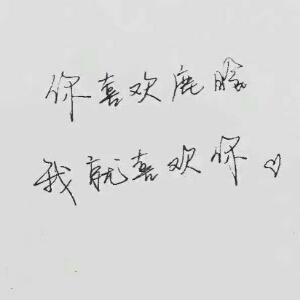 你喜欢鹿晗
我就喜欢你♡